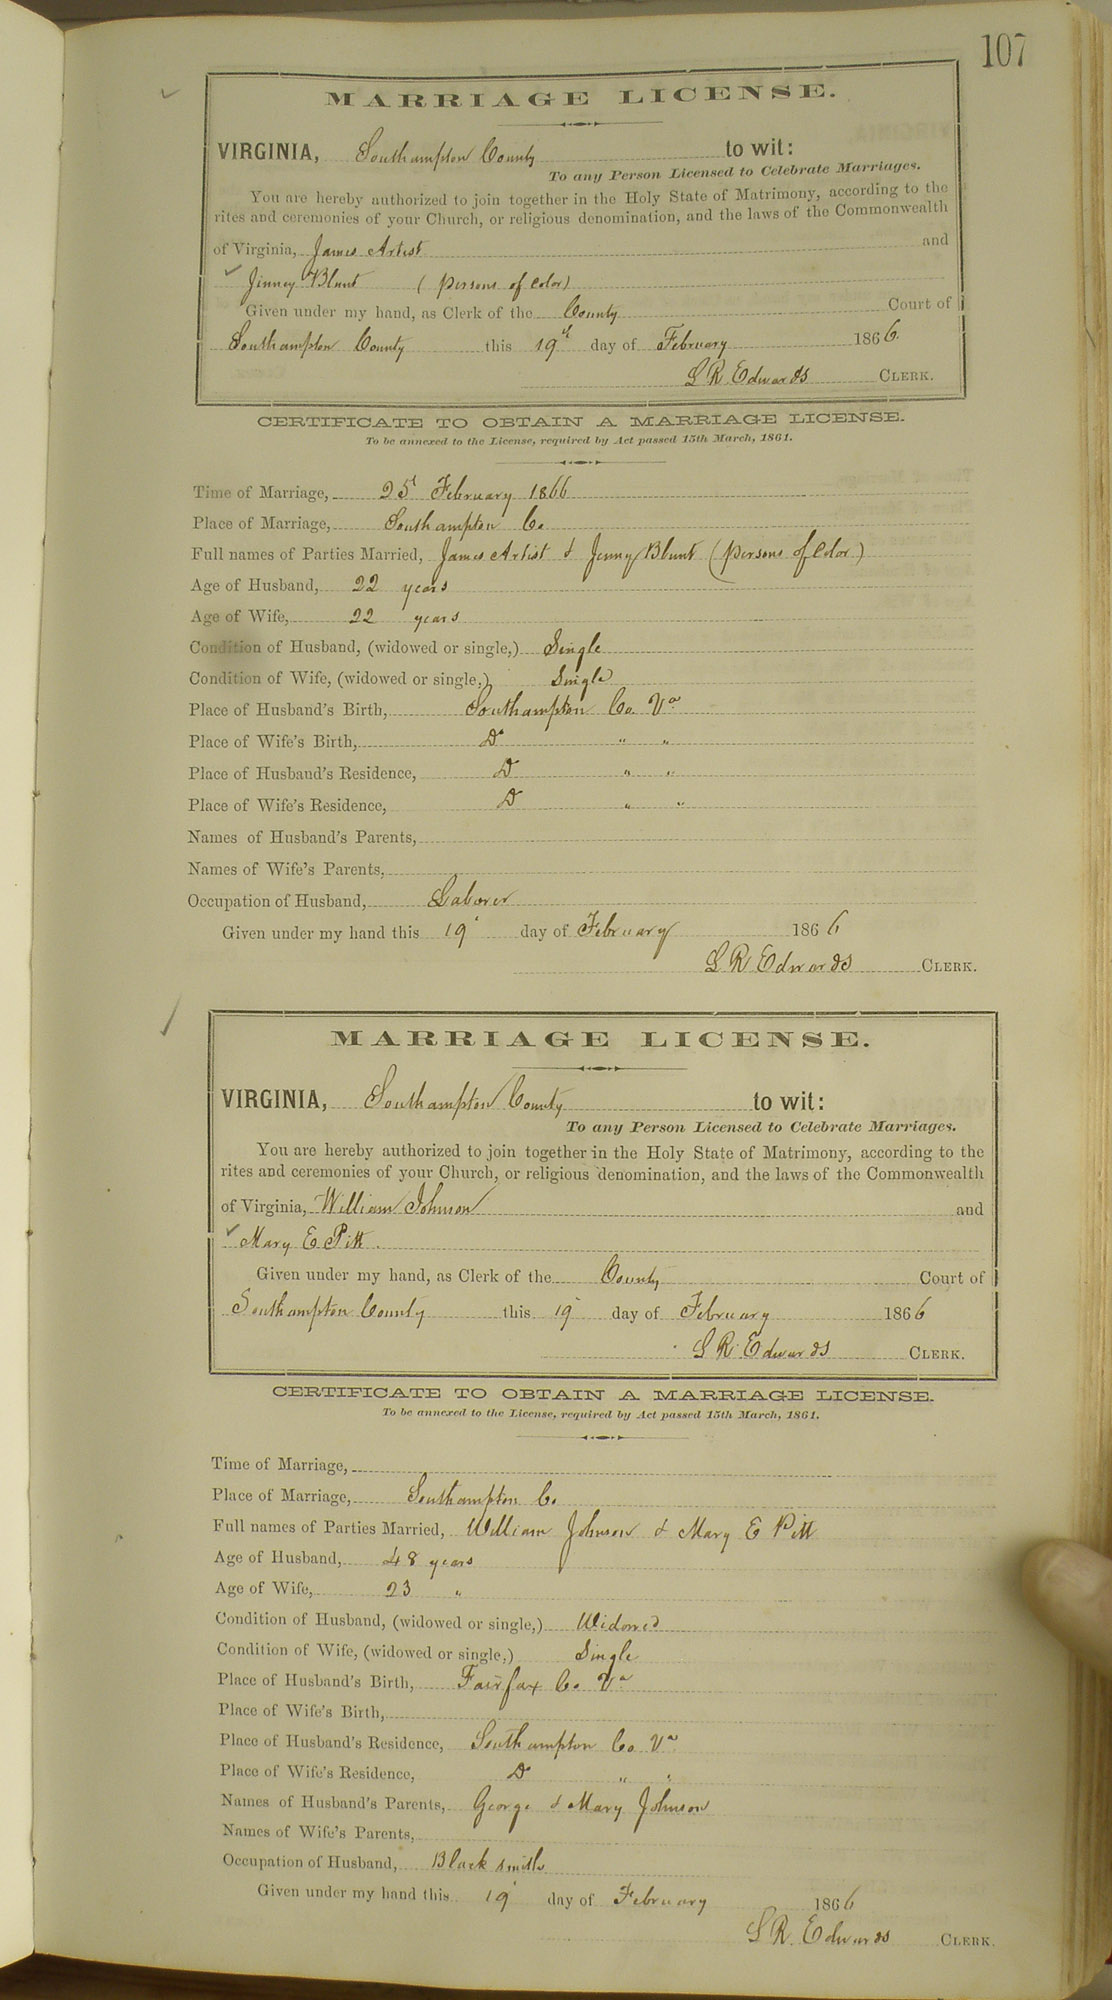 107
MARRIAGE LICENSE.
VIRGINIA, Southampton County to wit:
To any Person Licensed to Celebrate Marriages.
You are hereby authorized to join together in the Holy State of Matrimony, according to the
rites and ceremonies of your Church, or religious denomination, and the laws of the Commonwealth
of Virginia, James Artist and
Jinney Blunt ( persons of color)
Given under my hand, as Clerk of the County Court of
Southampton County this 19th day of February 1866.
L R Edwards CLERK.
CERTIFICATE TO OBTAIN A MARRIAGE LICENSE.
To be annexed to the License, required by Act passed 15th March, 1861.
Time of Marriage, 25 February 1866
Place of Marriage, Southampton Co
Full names of Parties Married, James Artist & Jenny Blunt (persons of Color)
Age of Husband, 22 years
Age of Wife, 22 years
Condition of Husband, (widowed or single,) Single
Condition of Wife, (widowed or single,) Single
Place of Husband's Birth, Southampton Co Va
Place of Wife's Birth, Do " "
Place of Husband's Residence, Do " "
Place of Wife's Residence, Do " "
Names of Husband's Parents,
Names of Wife's Parents,
Occupation of Husband, Laborer
Given under my hand this 19 day of February 1866
L R Edwards CLERK.
MARRIAGE LICENSE.
VIRGINIA, Southampton County to wit:
To any Person Licensed to Celebrate Marriages.
You are hereby authorized to join together in the Holy State of Matrimony, according to the
rites and ceremonies of your Church, or religious denomination, and the laws of the Commonwealth
of Virginia, William Johnson and
Mary E Pitt.
Given under my hand, as Clerk of the County Court of
Southampton County this 19 day of February 1866
L R Edwards CLERK.
CERTIFICATE TO OBTAIN A MARRIAGE LICENSE.
To be annexed to the License, required by Act passed 15th March, 1861.
Time of Marriage,
Place of Marriage, Southampton Co
Full names of Parties Married, William Johnson & Mary E Pitt
Age of Husband, 48 years
Age of Wife, 23 "
Condition of Husband, (widowed or single,) Widowed
Condition of Wife, (widowed or single,) Single
Place of Husband's Birth, Fairfax Co Va
Place of Wife's Birth,
Place of Husband's Residence, Southampton Co Va
Place of Wife's Residence, Do " "
Names of Husband's Parents, George & Mary Johnson
Names of Wife's Parents,
Occupation of Husband, Black smith
Given under my hand this 19 day of February 1866
L R. Edwards CLERK.